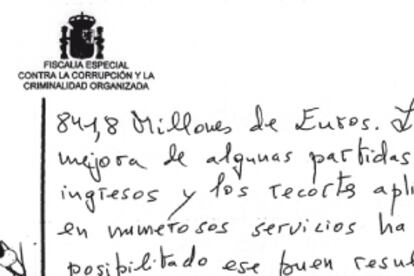 FISCALIA ESPECIAL
CONTRA LA CORRUPCIÓN Y LA
CRIMINALIDAD ORGANIZADA
841,8 Millones de Euros.
mejora de algunas partidas
ingresos y los recortes
en numerosos servicios ha
posibilitado ese buen